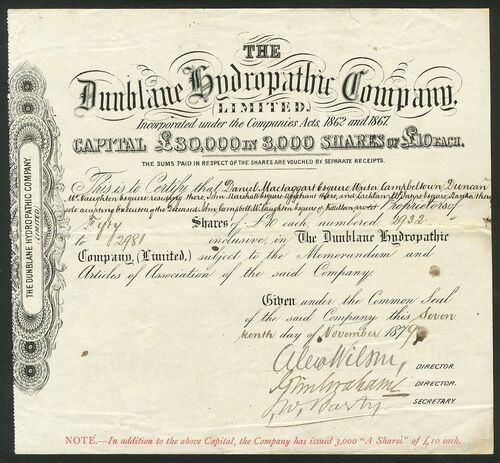 THE
Dunblane Hydropathic Company,
LIMITED.
Incorporated under the Companies Acts, 1862 and 1867.
CAPITAL £30,000 IN 3,000 SHARES OF £10 EACH.
THE SUMS PAID IN RESPECT OF THE SHARES ARE VOUCHED BY SEPARATE RECEIPTS.
This is to Certify that Daniel Mactaggart Esquire Writer Campbeltown, Duncan
McNaughton Esquire residing there, John Marshall Esquire there, and Lachlan Esquire
acting Executors of the deceased John Campbell McNaughton Esquire of Proprietors of
Fifty Shares of £10 each, numbered 2932
to 2981 inclusive, in The Dunblane Hydropathic
Company, (Limited,) subject to the Memorandum and
Articles of Association of the said Company.
Given under the Common Seal
of the said Company this Seven
teenth day of November 1879
Alex Wilson, DIRECTOR.
John Graham DIRECTOR.
J. W. Barty SECRETARY.
NOTE.—In addition to the above Capital, the Company has issued 3,000 "A Shares" of £10 each.
THE DUNBLANE HYDROPATHIC COMPANY,
(LIMITED.)